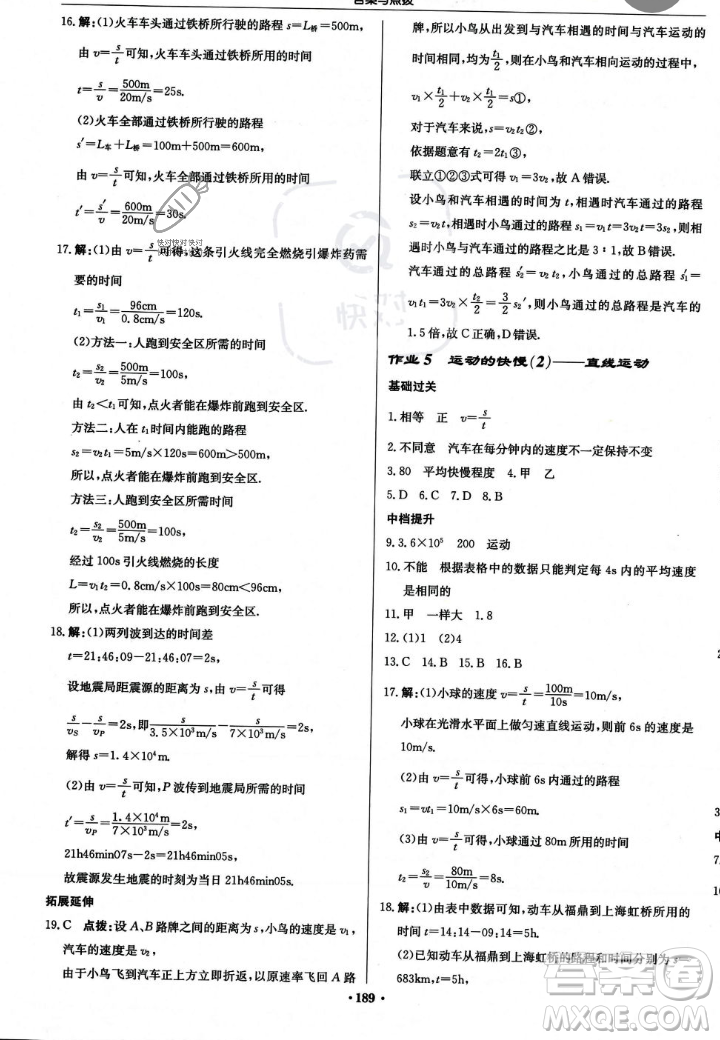 答案与点拨
16.解:(1)火车车头通过铁桥的路程 s=L桥=500m
由 v=s/t 可知,火车车头通过铁桥所用的时间
t=s/v=500m/20m/s=25s.
(2)火车全部通过铁桥所行驶的路程
s′=L车+L桥=100m+500m=600m,
由 v=s/t 可知,火车全部通过铁桥所用的时间
t′=s′/v=600m/20m/s=30s.
17.解:(1)由 v=s/t 可得,这条引火线完全燃烧引爆炸药需
要的时间
t₁=s₁/v₁=96cm/0.8cm/s=120s.
(2)方法一:人跑到安全区所需时间
t₂=s₂/v₂=500m/5m/s=100s,
由 t₂<t₁可知,点火者能在爆炸前跑到安全区.
方法二:人在 t₁时间内能跑的路程
s₂=v₂t₁=5m/s×120s=600m>500m,
所以,点火者能在爆炸前跑到安全区.
方法三:人跑到安全区所需时间
t₂=s₂/v₂=500m/5m/s=100s,
经过 100s 引火线燃烧的长度
L=v₁t₂=0.8cm/s×100s=80cm<96cm,
所以,点火者能在爆炸前跑到安全区.
18.解:(1)两列波到达的时间差
t=21:46:09-21:46:07=2s,
设地震局距震源的距离为 s,由 v=s/t 可得,
s/vS-s/vP=2s,即s/3.5×10³m/s-s/7×10³m/s=2s,
解得:s=1.4×10⁴m.
(2)由 v=s/t 可知,P 波传到地震局所需的时间
t′=s/vP=1.4×10⁴m/7×10³m/s=2s,
21h46min07s-2s=21h46min05s,
故震源发生地震的时刻为当日 21h46min05s.
拓展延伸
19.C 点拨:设 A、B 路牌之间的距离为 s,小鸟的速度是 v₁,
汽车的速度是 v₂,
由于小鸟飞到汽车正上方立即折返,以原速率飞回 A 路
牌,所以小鸟从出发到与汽车相遇的时间与汽车运动的
时间均为t₁/2,所以小鸟和汽车相向运动的过程中,
v₁×t₁/2+v₂×t₁/2=s①,
对于汽车来说,s=v₂t₂②,
依据题意有 t₂=2t₁③,
联立①②③式可得 v₁=3v₂,故 A 错误.
设小鸟与汽车相遇时的时间为 t,相遇时汽车通过的路程
s₂=v₂t,相遇时小鸟通过的路程 s₁=v₁t=3v₂t=3s₂,则相
遇时小鸟与汽车通过的路程之比是 3∶1,故 B 错误.
汽车通过的总路程 s₂′=v₂t₂,小鸟通过的总路程 s₁′=
v₁t₁=3v₂×1/2t₂=3/2s₂′,小鸟通过的总路程是汽车的
1.5 倍,故 C 正确,D 错误.
作业 5 运动的快慢(2)——直线运动
基础过关
1.相等 正 v=s/t
2.不同意 汽车在每分钟内的速度不一定保持不变
3.80 平均快慢程度 4.甲 乙
5.D 6.C 7.D 8.B
中档提升
9.3.6×10⁵ 200 运动
10.不能 根据表格中的数据只能判定每 4s 内的平均速度
是相同的
11.甲 一样大 1.8
12.(1)1 (2)4
13.C 14.B 15.B 16.C
17.解:(1)小球的速度 v=s/t=100m/10s=10m/s,
小球在光滑水平面上做匀速直线运动,则前 6s 的速度是
10m/s.
(2)由 v=s/t 可得,小球前 6s内通过的路程
s₁=vt₁=10m/s×6s=60m.
(3)由 v=s/t 可得,小球通过 80m 所用的时间
t₂=s₂/v=80m/10m/s=8s.
18.解:(1)由表中数据可知,动车从福鼎到上海虹桥所用的
时间 t=14:14-09:14=5h.
(2)已知动车从福鼎到上海虹桥的路程和时间分别为 s=
683km,t=5h,
·189·
快对快对快对
快对
答案圈